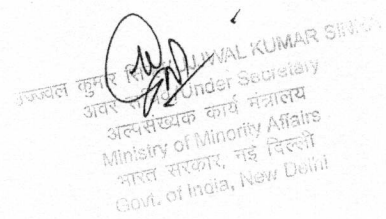 उज्ज्वल कुमार UJJWAL KUMAR SINHA
अवर Under Secretary
अल्पसंख्यक कार्य मंत्रालय
Ministry of Minority Affairs
भारत सरकार, नई दिल्ली
Govt. of India, New Delhi